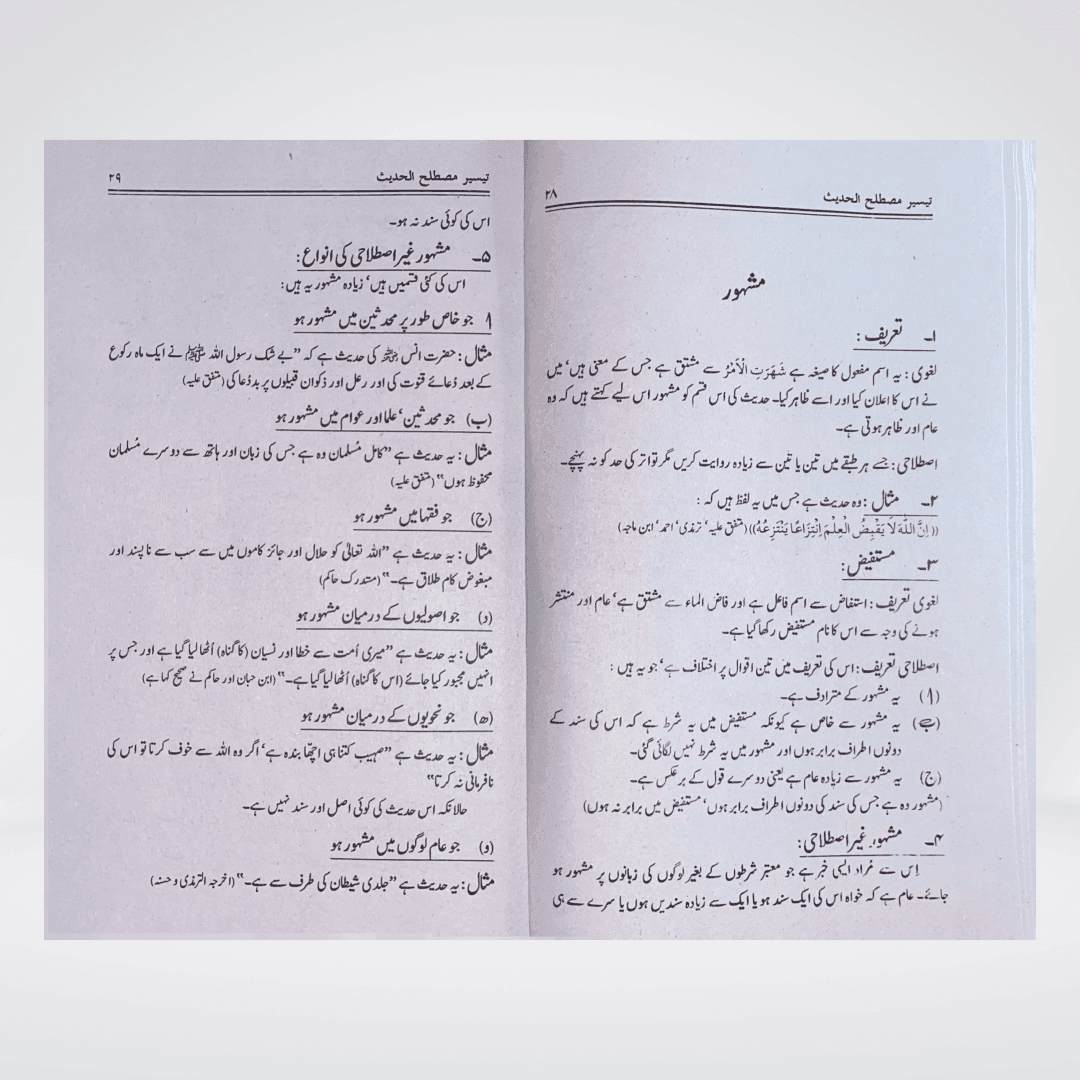 تیسیر مصطلح الحدیث ۲۸
مشہور
۱۔ تعریف :
لغوی : یہ اسم مفعول کا صیغہ ہے شَهَرَتِ الْاَمْرُ سے مشتق ہے جس کے معنی ہیں‘ میں
نے اس کا اعلان کیا اور اسے ظاہر کیا۔ حدیث کی اس قسم کو مشہور اس لیے کہتے ہیں کہ وہ
عام اور ظاہر ہوتی ہے۔
اصطلاحی : جسے ہر طبقے میں تین یا تین سے زیادہ روایت کریں مگر تواتر کی حد کو نہ پہنچے۔
۲۔ مثال : وہ حدیث ہے جس میں یہ لفظ ہیں کہ :
((اِنَّ اللّٰهَ لَا يَقْبِضُ الْعِلْمَ اِنْتِزَاعًا يَنْتَزِعُهُ)) (متفق علیہ‘ ترمذی‘ احمد‘ ابن ماجہ)
۳۔ مستفیض :
لغوی تعریف : استفاض سے اسم فاعل ہے اور فاض الماء سے مشتق ہے‘ عام اور منتشر
ہونے کی وجہ سے اس کا نام مستفیض رکھا گیا ہے۔
اصطلاحی تعریف : اس کی تعریف میں تین اقوال پر اختلاف ہے‘ جو یہ ہیں :
(ا) یہ مشہور کے مترادف ہے۔
(ب) یہ مشہور سے خاص ہے کیونکہ مستفیض میں یہ شرط ہے کہ اس کی سند کے
دونوں اطراف برابر ہوں اور مشہور میں یہ شرط نہیں لگائی گئی۔
(ج) یہ مشہور سے زیادہ عام ہے یعنی دوسرے قول کے برعکس ہے۔
(مشہور وہ ہے جس کی سند کی دونوں اطراف برابر ہوں‘ مستفیض میں برابر نہ ہوں)
۴۔ مشہور غیر اصطلاحی :
اِس سے مُراد ایسی خبر ہے جو معتبر شرطوں کے بغیر لوگوں کی زبانوں پر مشہور ہو
جائے۔ عام ہے کہ خواہ اس کی ایک سند ہو یا ایک سے زیادہ سندیں ہوں یا سرے سے ہی
تیسیر مصطلح الحدیث ۲۹
اس کی کوئی سند نہ ہو۔
۵۔ مشہور غیر اصطلاحی کی انواع :
اس کی کئی قسمیں ہیں‘ زیادہ مشہور یہ ہیں :
ا جو خاص طور پر محدثین میں مشہور ہو
مثال : حضرت انس رضی اللہ عنہ کی حدیث ہے کہ ”بے شک رسول اللہ ﷺ نے ایک ماہ رکوع
کے بعد دُعائے قنوت کی اور رعل اور ذکوان قبیلوں پر بددُعا کی (متفق علیہ)
(ب) جو محدثین‘ علما اور عوام میں مشہور ہو
مثال : یہ حدیث ہے ”کامل مُسلمان وہ ہے جس کی زبان اور ہاتھ سے دوسرے مُسلمان
محفوظ ہوں“ (متفق علیہ)
(ج) جو فقہا میں مشہور ہو
مثال : یہ حدیث ہے ”اللہ تعالیٰ کو حلال اور جائز کاموں میں سے سب سے ناپسند اور
مبغوض کام طلاق ہے۔“ (متدرک حاکم)
(د) جو اصولیوں کے درمیان مشہور ہو
مثال : یہ حدیث ہے ”میری اُمت سے خطا اور نسیان (کا گناہ) اُٹھا لیا گیا ہے اور جس پر
انہیں مجبور کیا جائے (اس کا گناہ) اُٹھا لیا گیا ہے۔“ (ابن حبان اور حاکم نے صحیح کہا ہے)
(ھ) جو نحویوں کے درمیان مشہور ہو
مثال : یہ حدیث ہے ”صہیب کتنا ہی اچھا بندہ ہے‘ اگر وہ اللہ سے خوف کرتا تو اس کی
نافرمانی نہ کرتا“
حالانکہ اس حدیث کی کوئی اصل اور سند نہیں ہے۔
(و) جو عام لوگوں میں مشہور ہو
مثال : یہ حدیث ہے ”جلدی شیطان کی طرف سے ہے۔“ (اخرجہ الترمذی و حسنہ)